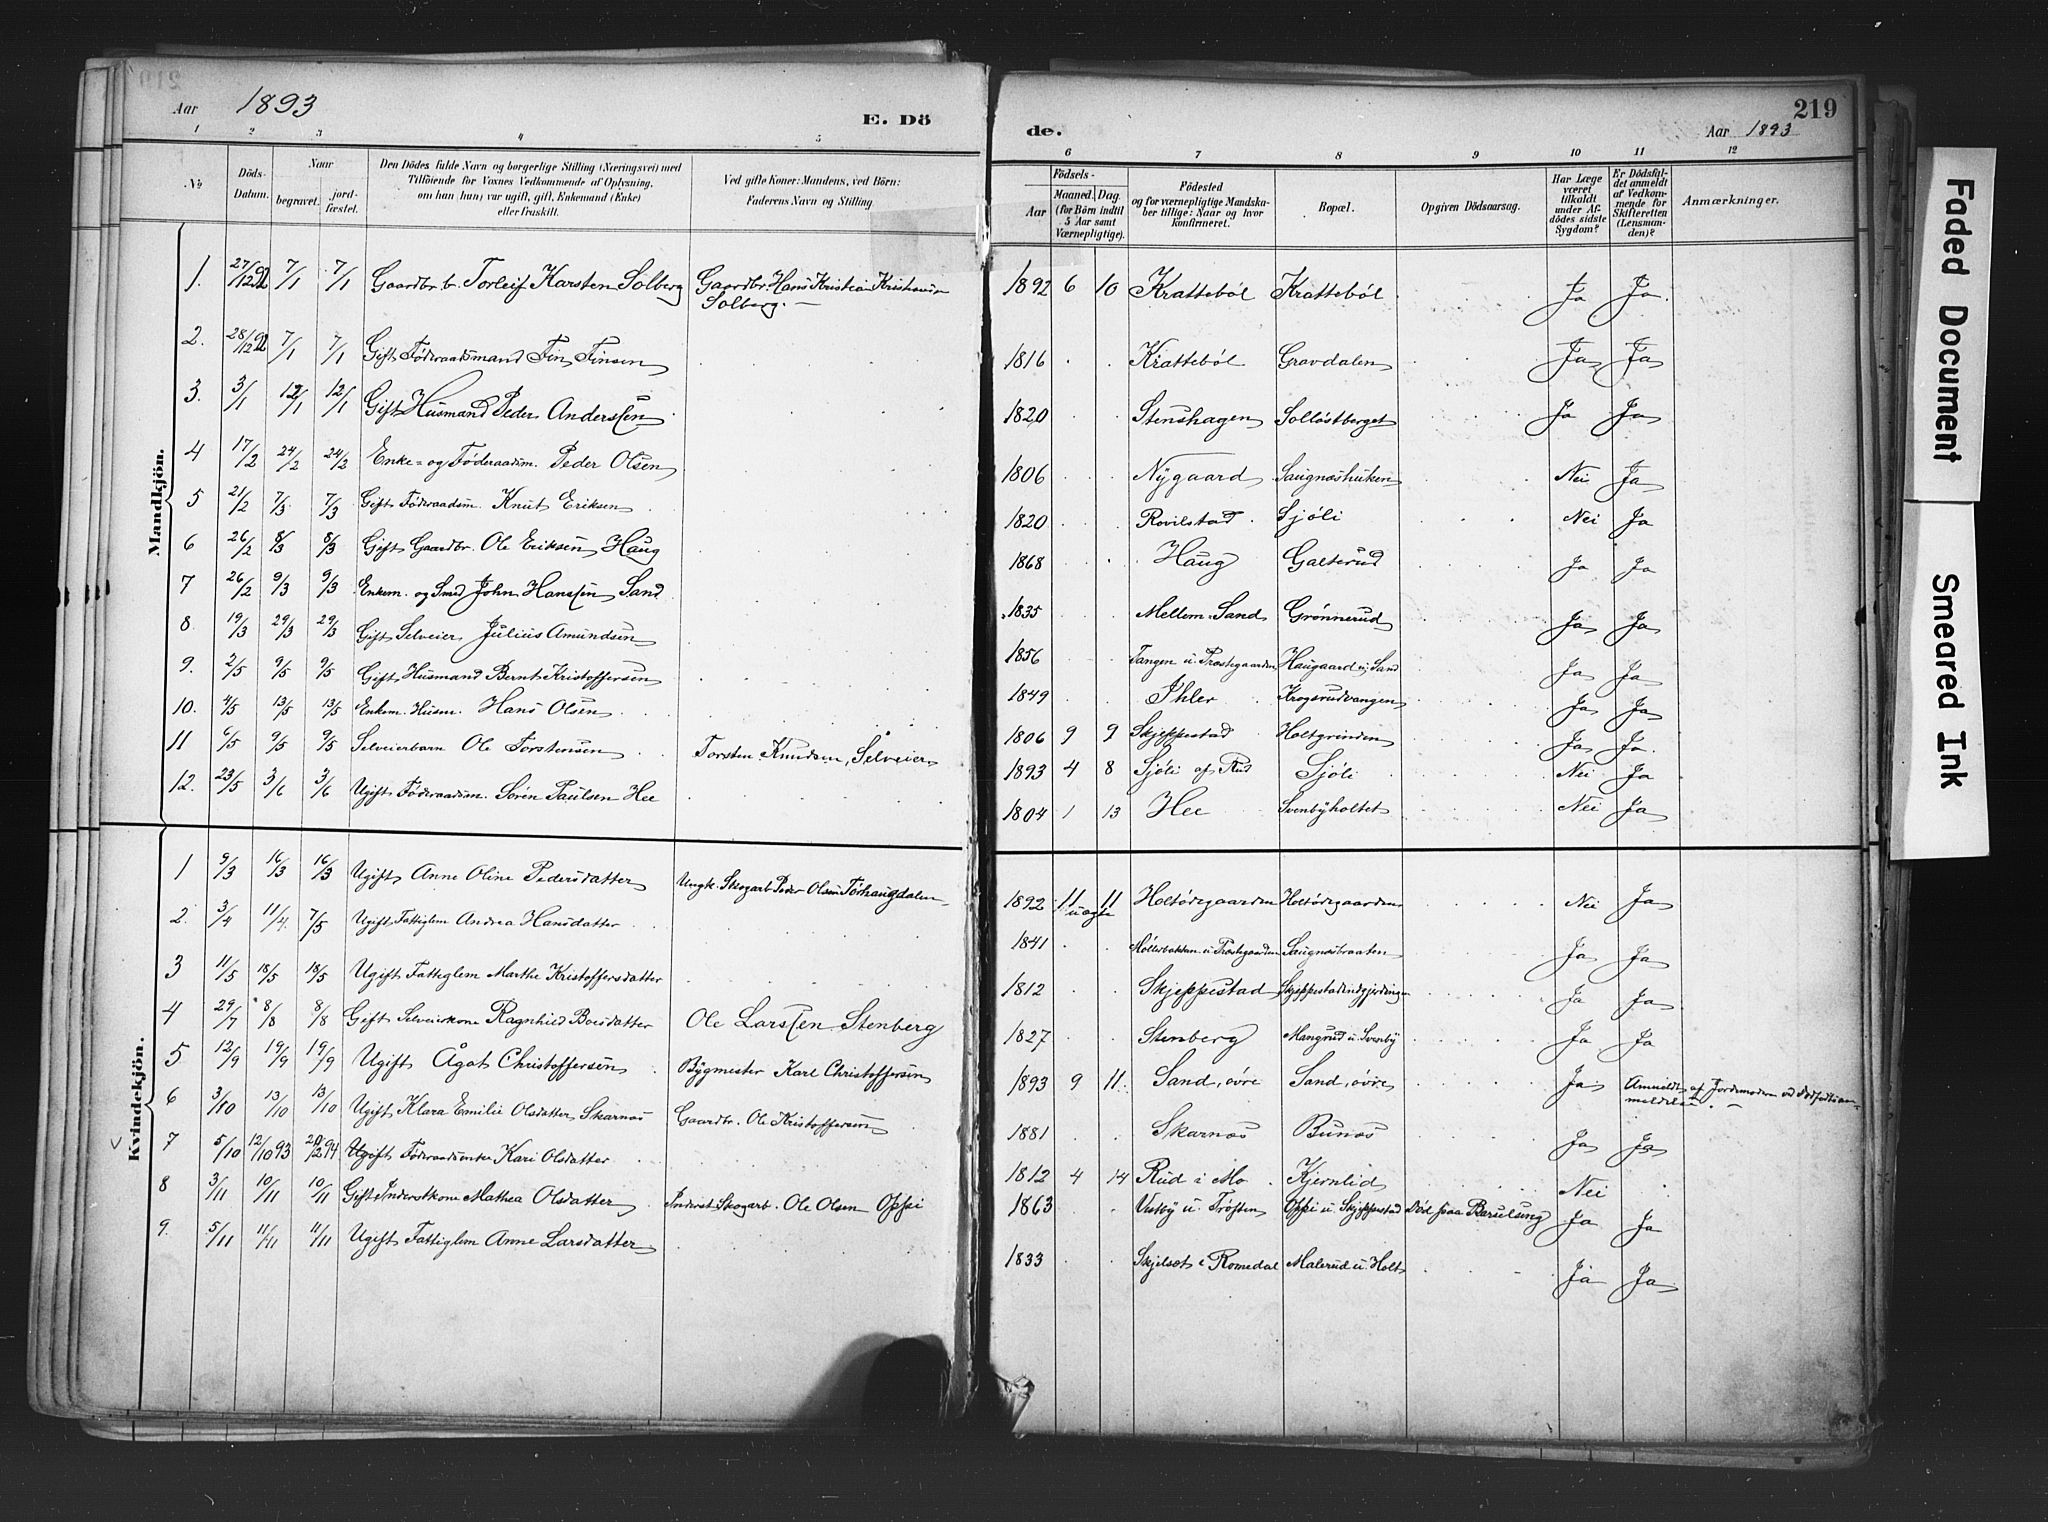 Aar 1893
E. Dö
1 2 3 4 5
No
Döds-Datum.
Naar
begravet.
jord-fæstet.
Den Dödes fulde Navn og borgerlige Stilling (Næringsvei) med
Tilföiende for Voxnes Vedkommende af Oplysning,
om han (hun) var ugift, gift, Enkemand (Enke)
eller fraskilt.
Ved gifte Koner: Mandens, ved Börn:
Faderens Navn og Stilling
Mandkjön.
1. 27/12 92 7/1 7/1 Gaardbr. b. Torleif Karsten Solberg Gaardbr. Hans Kristian
Solberg.
2. 28/12 92 7/1 7/1 Gift Föderaadsmand Fin Finsen
3. 3/1 12/1 12/1 Gift Husmand Peder Anderssen
4 17/2 24/2 24/2 Enke- og Föderaadsm. Peder Olsen
5 21/2 7/3 7/3 Gift Föderaadsm. Knut Eriksen
6 26/2 8/3 8/3 Gift Gaardbr. Ole Eriksen Haug
7 26/2 9/3 9/3 Enkem. og Smed John Hanssen Sand
8 19/3 29/3 29/3 Gift Selveier Julius Amundsen
9. 2/5 9/5 9/5 Gift Husmand Bernt Kristoffersen
10. 4/5 13/5 13/5 Enkem. Husm. Hans Olsen
11 6/5 9/5 9/5 Selveierbarn Ole Torstensen Torsten Knudsen, Selveier
12. 23/5 3/6 3/6 Ugift Föderaadsm. Sören Paulsen Hee
Kvindekjön.
1 9/3 16/3 16/3 Ugift Anne Oline Pedersdatter Ungk. Skogarb. Peder Olsen Törhaugdalen
2. 3/4 11/4 7/5 Ugift Fattiglem Andrea Hansdatter
3 11/5 18/5 18/5 Ugift Fattiglem Marthe Kristoffersdatter
4 29/7 8/8 8/8 Gift Selveierkone Ragnhild Boesdatter Ole Larssen Stenberg
5 12/9 19/9 19/9 Ugift Ågot Christoffersen Bygmester Karl Christoffersen
6 3/10 13/10 13/10 Ugift Klara Emilie Olsdatter Skarnæs Gaardbr. Ole Kristoffersen
7 5/10 12/10 93 20/2 94 Ugift Föderaadsenke Kari Olsdatter
8 3/11 10/11 10/11 Gift Inderstkone Mathea Olsdatter Inderst Skogarb. Ole Olsen Oppi
9. 5/11 11/11 11/11 Ugift Fattiglem Anne Larsdatter
219
de.
Aar 1893
6 7 8 9 10 11 12
Födsels-
Aar
Maaned. Dag.
(for Börn indtil
5 Aar samt
Værnepligtige).
Födested
og for værnepligtige Mandska-
ber tillige: Naar og hvor
konfirmeret.
Bopæl.
Opgiven Dödsaarsag.
Har Læge
været
tilkaldt
under Af-
dödes sidste
Sygdom?
Er Dödsfal-
det anmeldt
af Vedkom-
mende for
Skifteretten
(Lensman-
den)?
Anmærkninger.
1892 6 10 Krattebøl Krattebøl Ja Ja
1816 Krattebøl Gravdalen Ja Ja
1820 Stenshagen Solløstberget Ja Ja
1806 Nygaard Saugnæshuken Nei Ja
1820 Rovilstad Sjøli Nei Ja
1868 Haug Galterud Ja Ja
1835 Mellem-Sand Grønnerud Ja Ja
1856 Tangen u. Præstegaarden Haugaard u. Sand Ja Ja
1849 Ihler Krogsrudvangen Ja Ja
1806 9 9 Skjeppestad Holtgrinden Ja Ja
1893 4 8 Sjøli af Rud Sjøli Nei Ja
1804 1 13 Hee Svenbyholtet Nei Ja
1892 11 11 Holtødegaarden Holtødegaarden Nei Ja
uægte
1841 Møllerbakken u. Præstegaarden Saugnæsbraaten Ja Ja
1812 Skjeppestad Skjeppestadindgjerdingen Ja Ja
1827 Stenberg Mangrud u. Svenby Ja Ja
1893 9 11 Sand, øvre Sand, øvre Ja Anmeldt af Jordemoderen ved Dødfødtsan-
meldelse.
1881 Skarnæs Bunæs Ja Ja
1812 4 14 Rud i Mo Kjernlid Nei
1863 Vestby u. Trøften Oppi u. Skjeppestad Død paa Barselseng Ja Ja
1833 Skjelset i Romedal Malerud u. Holt Ja Ja
Faded Document
Smeared Ink